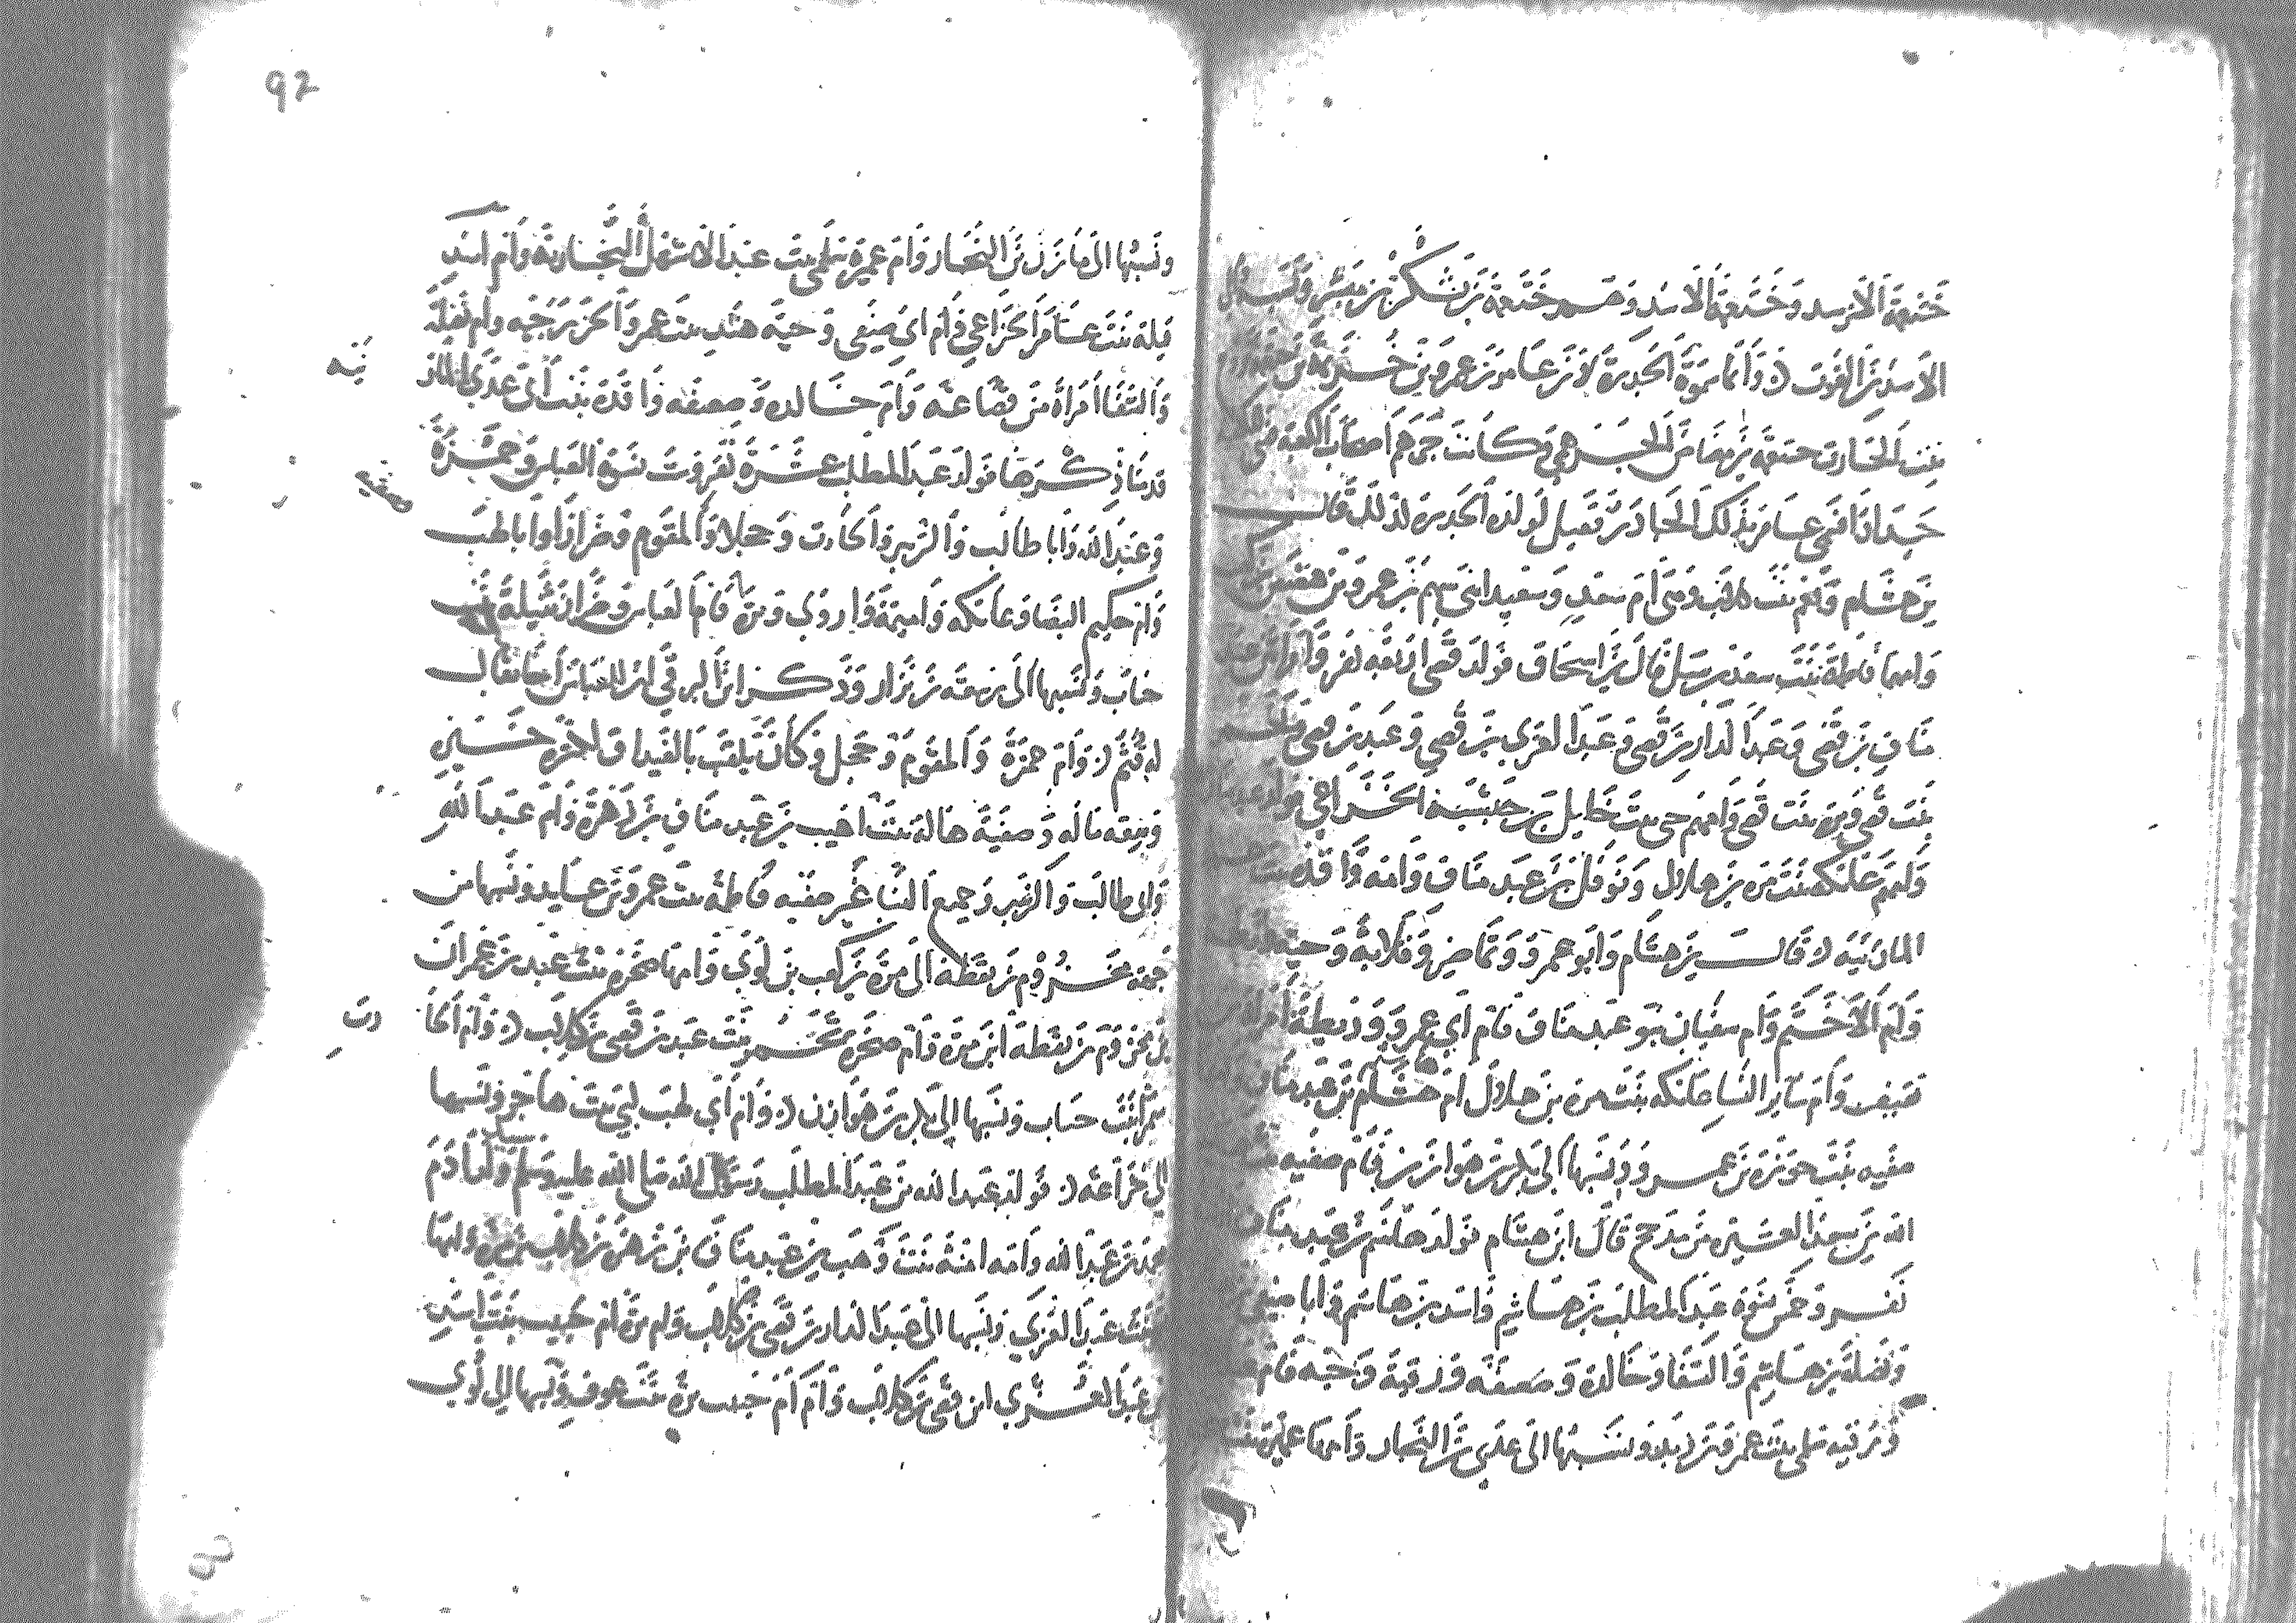 خثعمة الأسد وخثعمة الأسد وهم خثعمة بن يشكر بن مبشر
الاسد بن الغوث وانما سموا الجدرة لان عامر بن عمرو بن خزيمة بن جعثمة
بنت الحارث بن مضاض الجرهمي وكانت جرهم اصحاب الكعبة
جدارا فسمي عامر بذلك الجادر فقيل لولده الجدرة لذلك قال
بن هشام ونعم بنت كلاب وهي ام سعد وسعيد ابني سهم بن عمرو بن هصيص
وامها فاطمة بنت سعد بن سيل قال بن اسحاق فولد قصي اربعة نفر وامراتين عبد
مناف بن قصي وعبد الدار بن قصي وعبد العزي بن قصي وعبد بن قصي
بنت قصي وبرة بنت قصي وامهم حبي بنت حليل بن حبشية الخزاعي
وامهم عاتكة بنت مرة بن هلال ونوفل بن عبد مناف وامه واقدة
المازنية قال بن هشام وابو عمرو وتماضر وقلابة وحية
وام الاخثم وام سفيان بنو عبد مناف فام ابي عمرو وريطة امراة
ثقيف وام ساير النسا عاتكة بنت مرة بن هلال ام هاشم بن عبد مناف
صفية بنت حوزة بن عمرو ونسبها الى بكر بن هوازن وام صفية
الله بن سعد العشيرة بن مذحج قال ابن هشام فولد هاشم بن عبد مناف
نفر وخمس نسوة عبد المطلب بن هاشم واسد بن هاشم وابا صيفي
ونضلة بن هاشم والشفا وخالدة وضعيفة ورقية وحية فام
ورقية سلمي بنت عمرو بن زيد ونسبها الى عدي بن النجار وامها عميرة بنت
92
ونسبها الى مازن بن النجار وام عميرة سلمى بنت عبد الاشهل النجارية وام اسد
قيلة بنت عامر الخزاعي وام ابي صيفي وحية هند بنت عمرو الخزرجية وام نضلة
والشفا امراة من قضاعة وام خالدة وضعيفة واقدة بنت ابي عدي الماز
نية
قدمنا ذكرها فولد عبد المطلب عشرة نفر وست نسوة العباس وحمزة
وعبد الله وابا طالب والزبير والحارث وحجلا والمقوم وضرارا وابا لهب
وصفية
وام حكيم البيضا وعاتكة واميمة واروي وبرة فام العباس وضرار نتيلة بنت
جناب ونسبها الى ربيعة بن نزار وذكر ابن البرقي ان للعباس اخا يقال
له قثم وام حمزة والمقوم وحجل وكان يلقب بالغيداق لكثرة خيره
وسعة ماله وصفية هالة بنت اهيب بن عبد مناف بن زهرة وام عبد الله
وابي طالب والزبير وجميع النسا غير صفية فاطمة بنت عمرو بن عايذ ونسبها من
جهة مخزوم بن يقظة الى مرة بن كعب بن لؤي وامها صخرة بنت عبد بن عمران
بن مخزوم بن يقظة ابن مرة وام صخرة تخمر بنت عبد بن قصي بن كلاب وام الحا
رث
سمرا بنت جناب ونسبها الى بكر بن هوازن وام ابي لهب لبني بنت هاجر ونسبها
الى خزاعة فولد عبد الله بن عبد المطلب رسول الله صلى الله عليه وسلم سيد ولد ادم
محمد بن عبد الله وامه امنة بنت وهب بن عبد مناف بن زهرة بن كلاب بن مرة وامها
برة بنت عبد العزي ونسبها الى عبد الدار بن قصي بن كلاب وام برة ام حبيب بنت اسد
بن عبد العزي ابن قصي بن كلاب وام ام حبيب برة بنت عوف ونسبها الى لوي